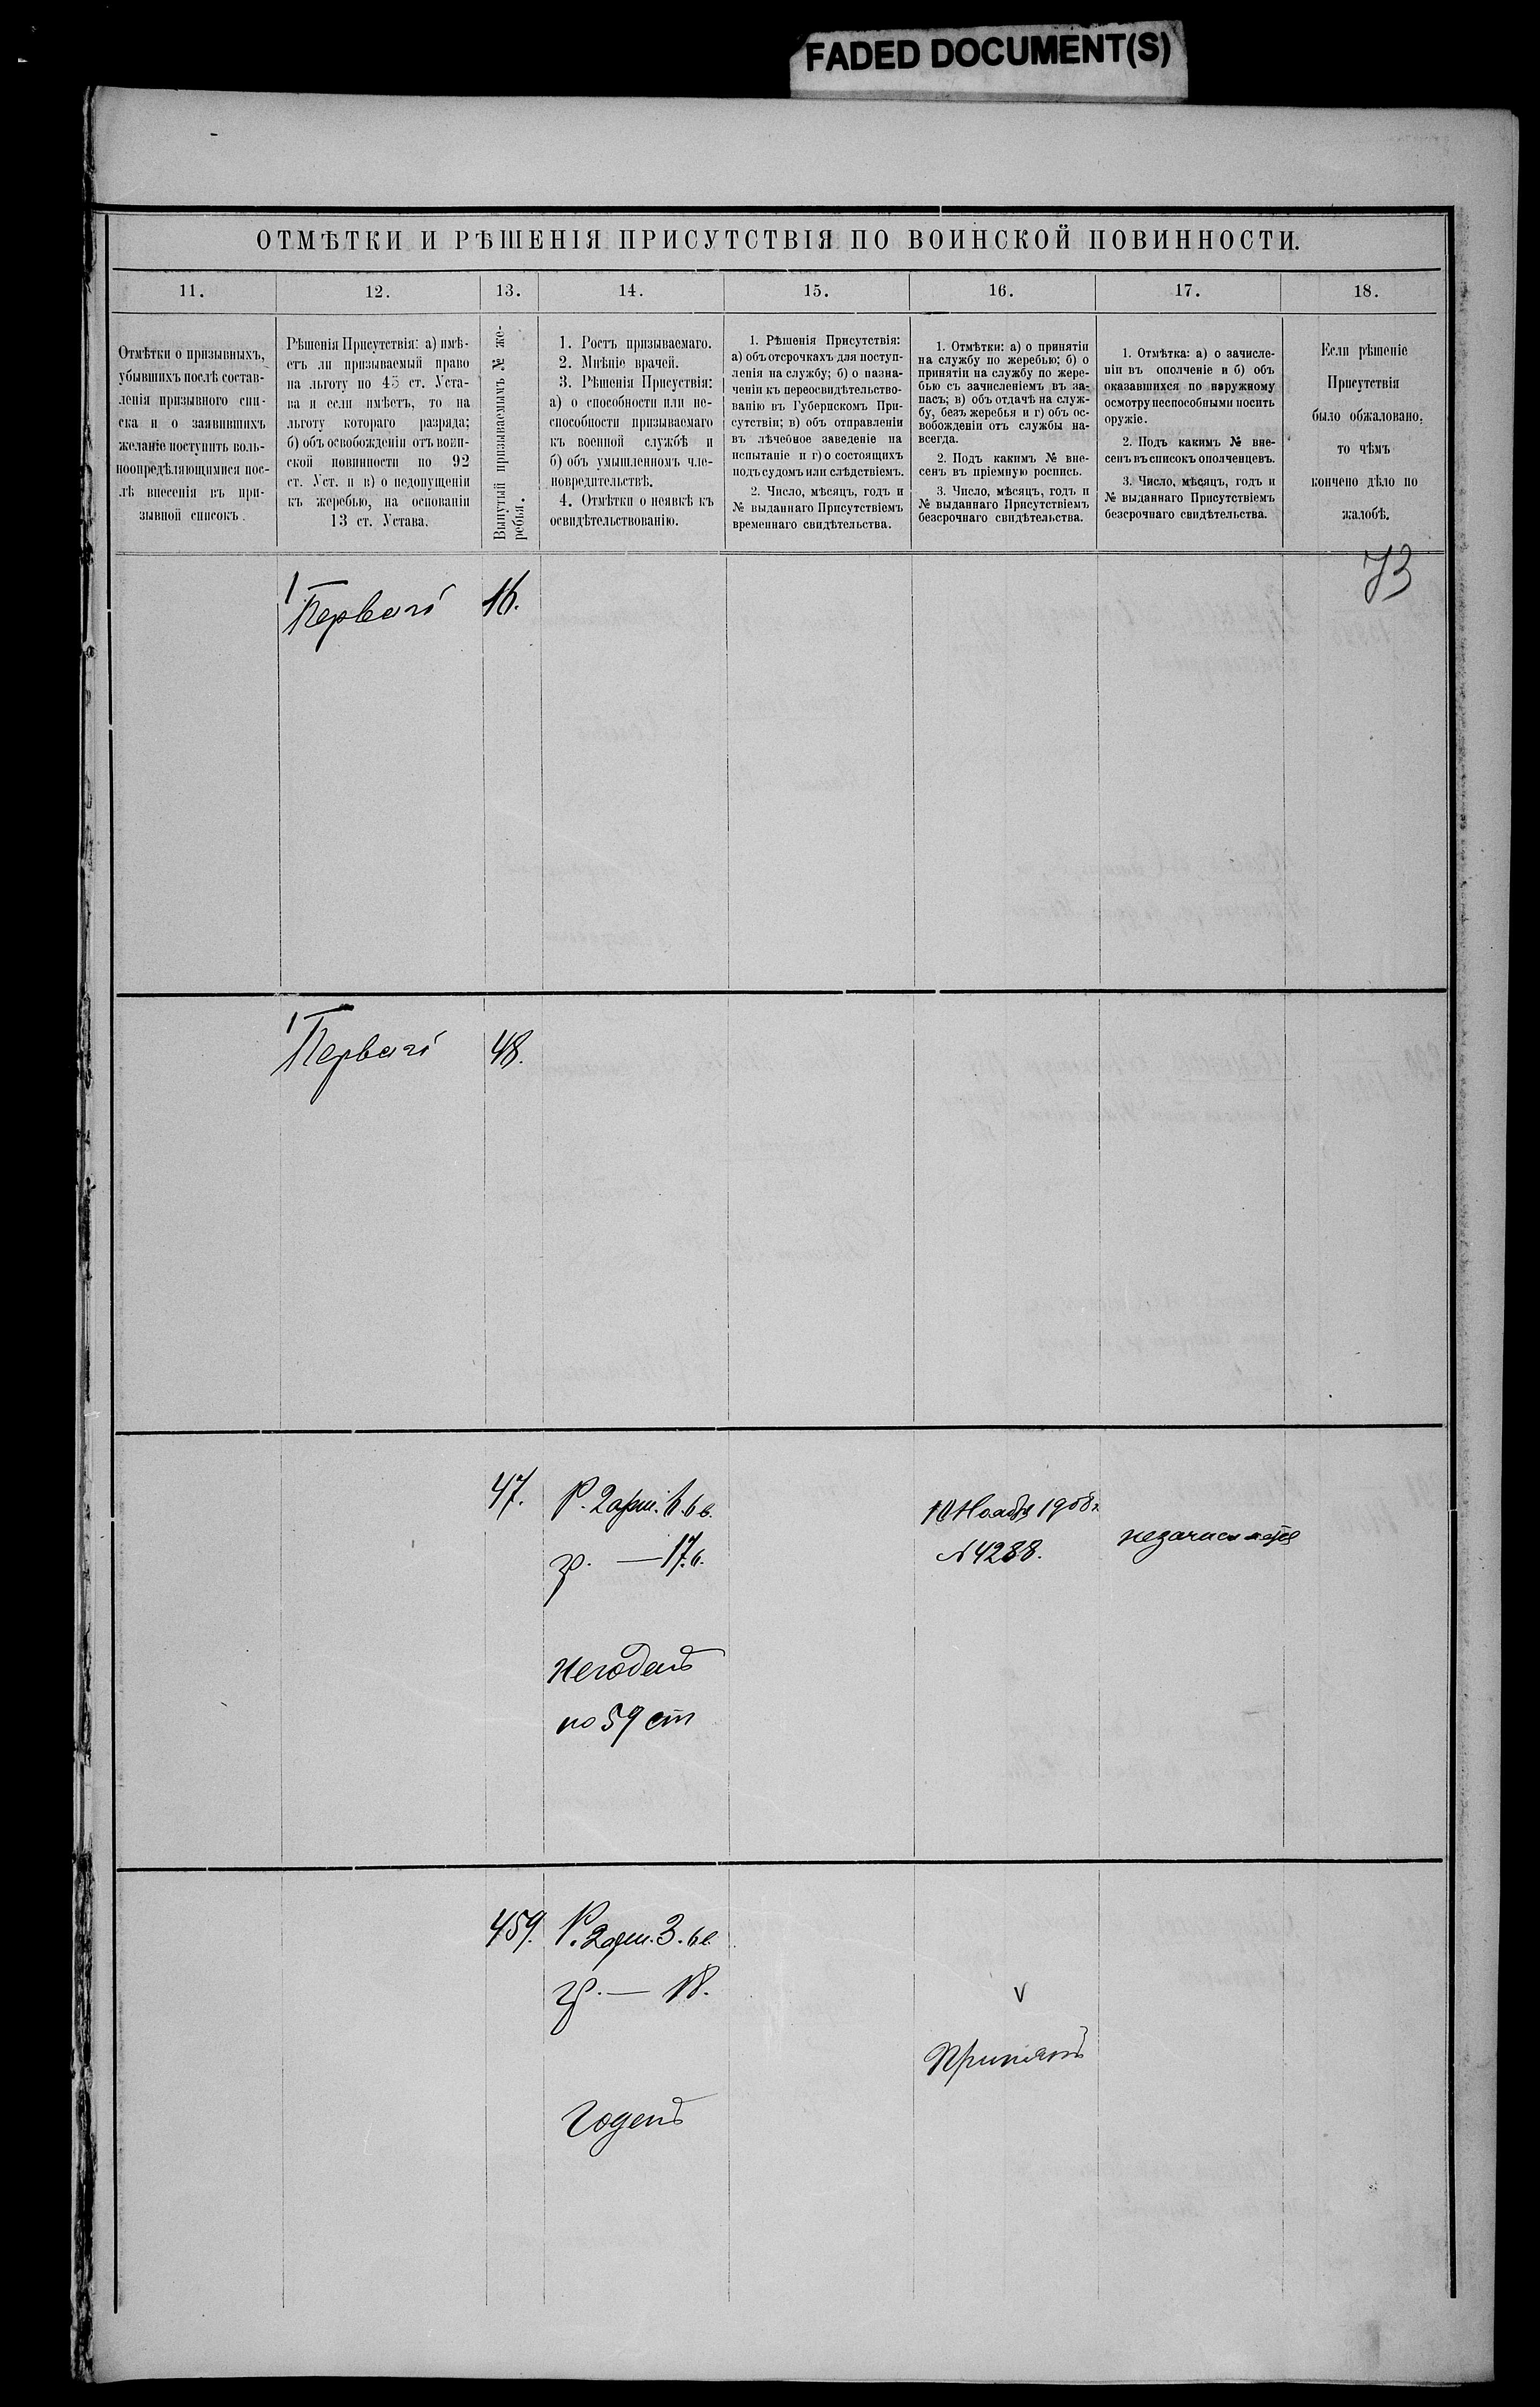 FADED DOCUMENT(S)
ОТМѢТКИ И РѢШЕНІЯ ПРИСУТСТВІЯ ПО ВОИНСКОЙ ПОВИННОСТИ.
11.
12.
13.
14.
15.
16.
17.
18.
Отмѣтки о призывныхъ,
убывшихъ послѣ состав-
ленія призывного спи-
ска и о заявившихъ
желаніе поступить воль-
ноопредѣляющимися пос-
лѣ внесенія въ при-
зывной списокъ.
Рѣшенія Присутствія: а) имѣ-
етъ ли призываемый право
на льготу по 45 ст. Уста-
ва и если имѣетъ, то на
льготу котораго разряда;
б) объ освобожденіи отъ воин-
ской повинности по 92
ст. Уст. и в) о недопущеніи
къ жеребью, на основаніи
13 ст. Устава.
Вынутый призываемымъ № же-
ребья.
1. Ростъ призываемаго.
2. Мнѣніе врачей.
3. Рѣшенія Присуствія:
а) о способности или не-
способности призываемаго
къ военной службѣ и
б) объ умышленномъ чле-
новредительствѣ.
4. Отмѣтки о неявкѣ къ
освидѣтельствованію.
1. Рѣшенія Присутствія:
а) объ отсрочкахъ для поступ-
ленія на службу; б) о назна-
ченіи къ переосвидѣтельство-
ванію въ Губернскомъ При-
сутствіи; в) объ отправленіи
въ лѣчебное заведеніе на
испытаніе и г) о состоящихъ
подъ судомъ или слѣдствіемъ.
2. Число, мѣсяцъ, годъ и
№ выданнаго Присутствіемъ
временнаго свидѣтельства.
1. Отмѣтки: а) о принятіи
на службу по жеребью; б) о
принятіи на службу по жере-
бью съ зачисленіемъ въ за-
пасъ; в) объ отдачѣ на служ-
бу, безъ жеребья и г) объ ос-
вобожденіи отъ службы на-
всегда.
2. Подъ какимъ № вне-
сенъ въ пріемную роспись.
3. Число, мѣсяцъ, годъ и
№ выданнаго Присутствіемъ
безсрочнаго свидѣтельства.
1. Отмѣтка: а) о зачисле-
ніи въ ополченіе и б) объ
оказавшихся по наружному
осмотру неспособными носить
оружіе.
2. Подъ какимъ № вне-
сенъ въ списокъ ополченцевъ.
3. Число, мѣсяцъ, годъ и
№ выданнаго Присутствіемъ
безсрочнаго свидѣтельства.
Если рѣшеніе
Присутствія
было обжаловано,
то чѣмъ
кончено дѣло по
жалобѣ.
73
1
16.
1
48.
47.
Р. 2 арш. 6 в.
гр. — 17 в.
негоденъ
по 59 ст
10 Ноября 1908 г.
№ 4288.
459.
Р. 2 арш. 3. в.
гр. — 18.
годенъ
v
Принятъ